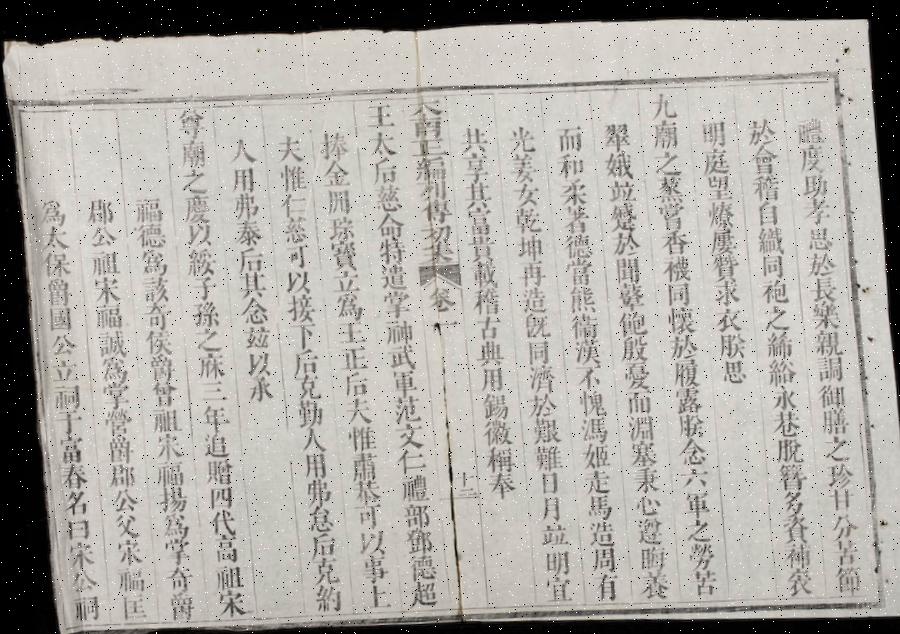 醴度助孝思於長樂親調御膳之珍甘分苦節
於會稽自織同袍之絺綌永巷脫簪多資補袞
明庭望燎屢贊求衣朕思
九廟之蒸嘗香襪同懷於履露朕念六軍之勞苦
翠娥竝躄於聞鼙飽殷憂而淵塞秉心遵晦養
而和柔著德當熊衛漢不愧馮姬走馬造周有
光姜女乾坤再造旣同濟於艱難日月竝明宜
共享其富貴載稽古典用錫徽稱奉
大南正編列傳初集 卷一 十三
王太后慈命特遣掌神武軍范文仁禮部鄧德超
捧金冊珠寶立爲王正后夫惟肅恭可以事上
夫惟仁慈可以接下后克勤人用弗怠后克約
人用弗泰后其念玆以承
尊廟之慶以綏子孫之庥三年追贈四代高祖宋
福德爲該奇侯爵曾祖宋福揚爲掌奇爵
郡公祖宋福誠爲掌營爵郡公父宋福匡
爲太保爵國公立祠于富春名曰宋公祠